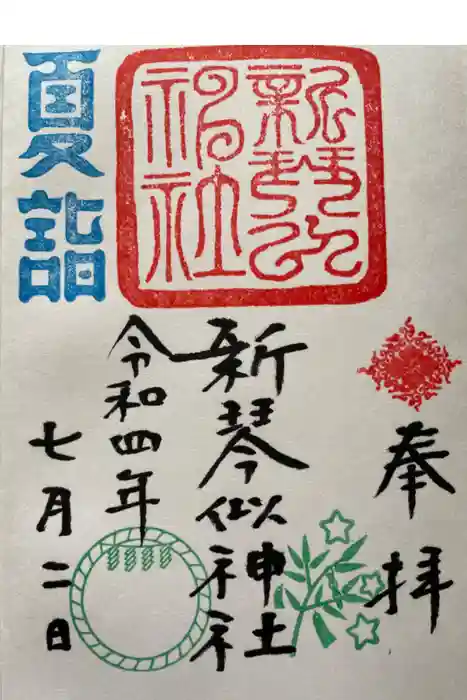 奉拝
新琴似
神社
新琴似神社
令和四年
七月二日
夏詣